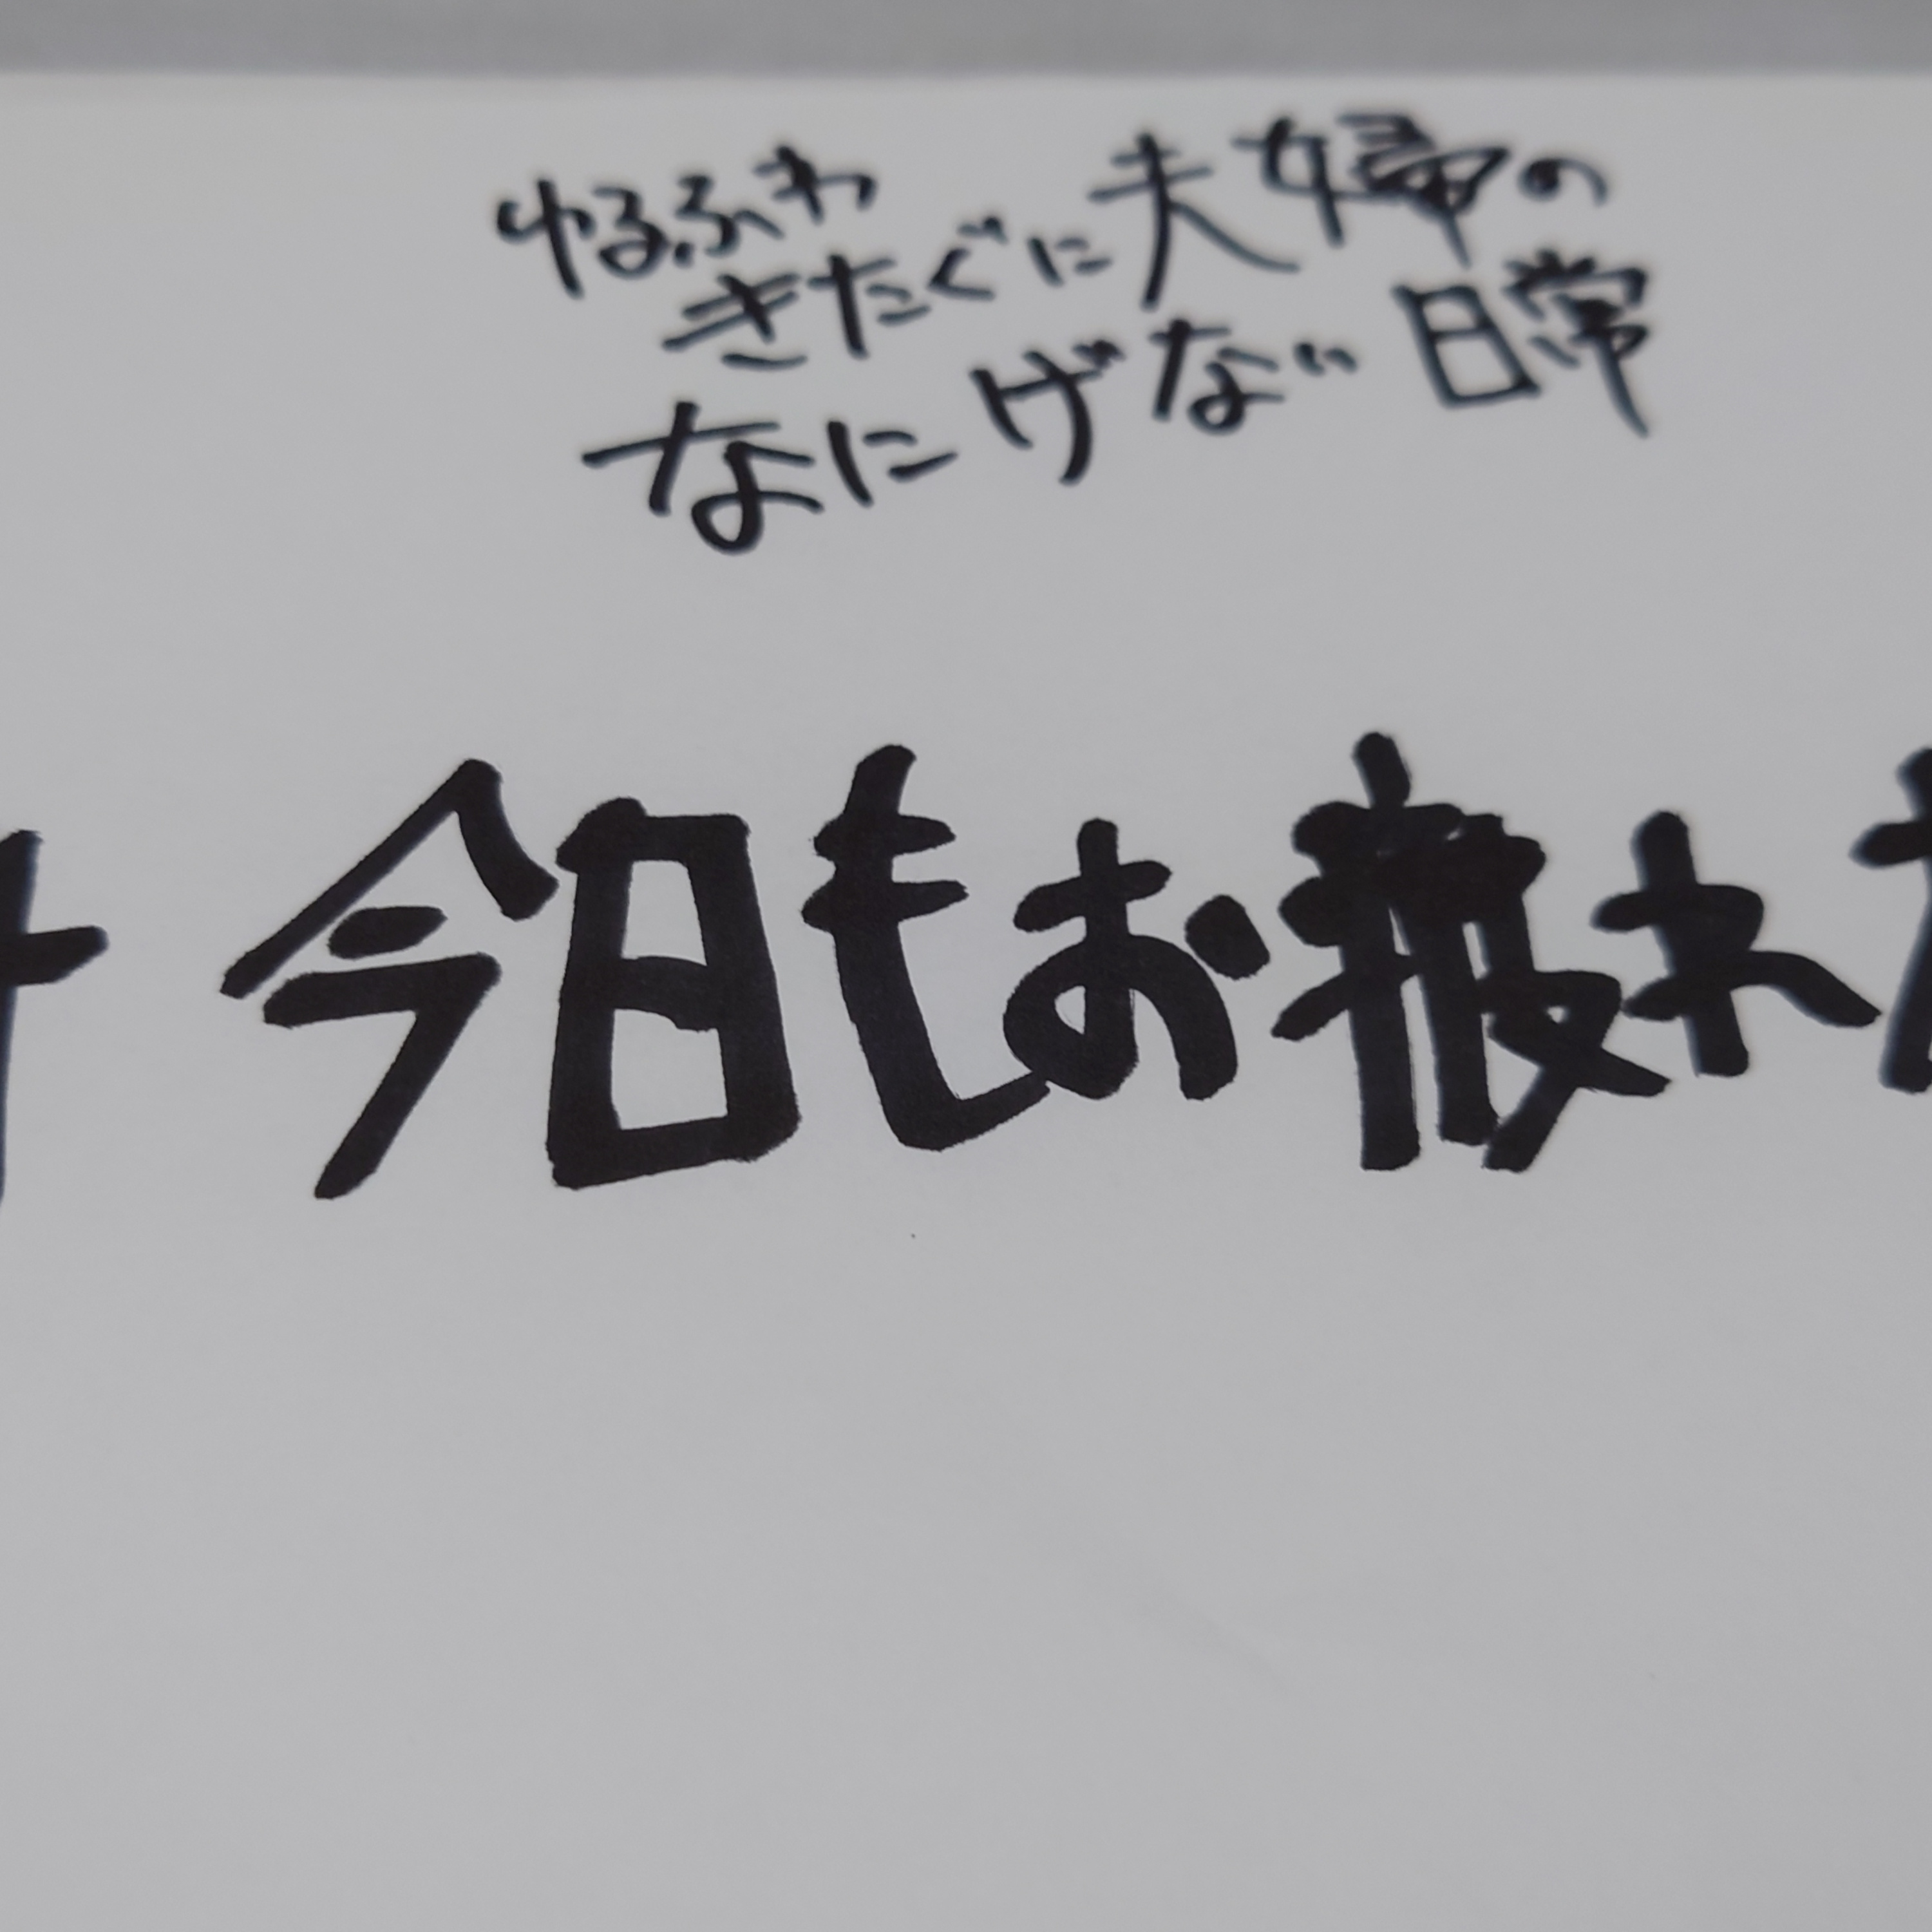 ゆるふわ
きたぐに夫婦の
なにげない日常
今日もお疲れ